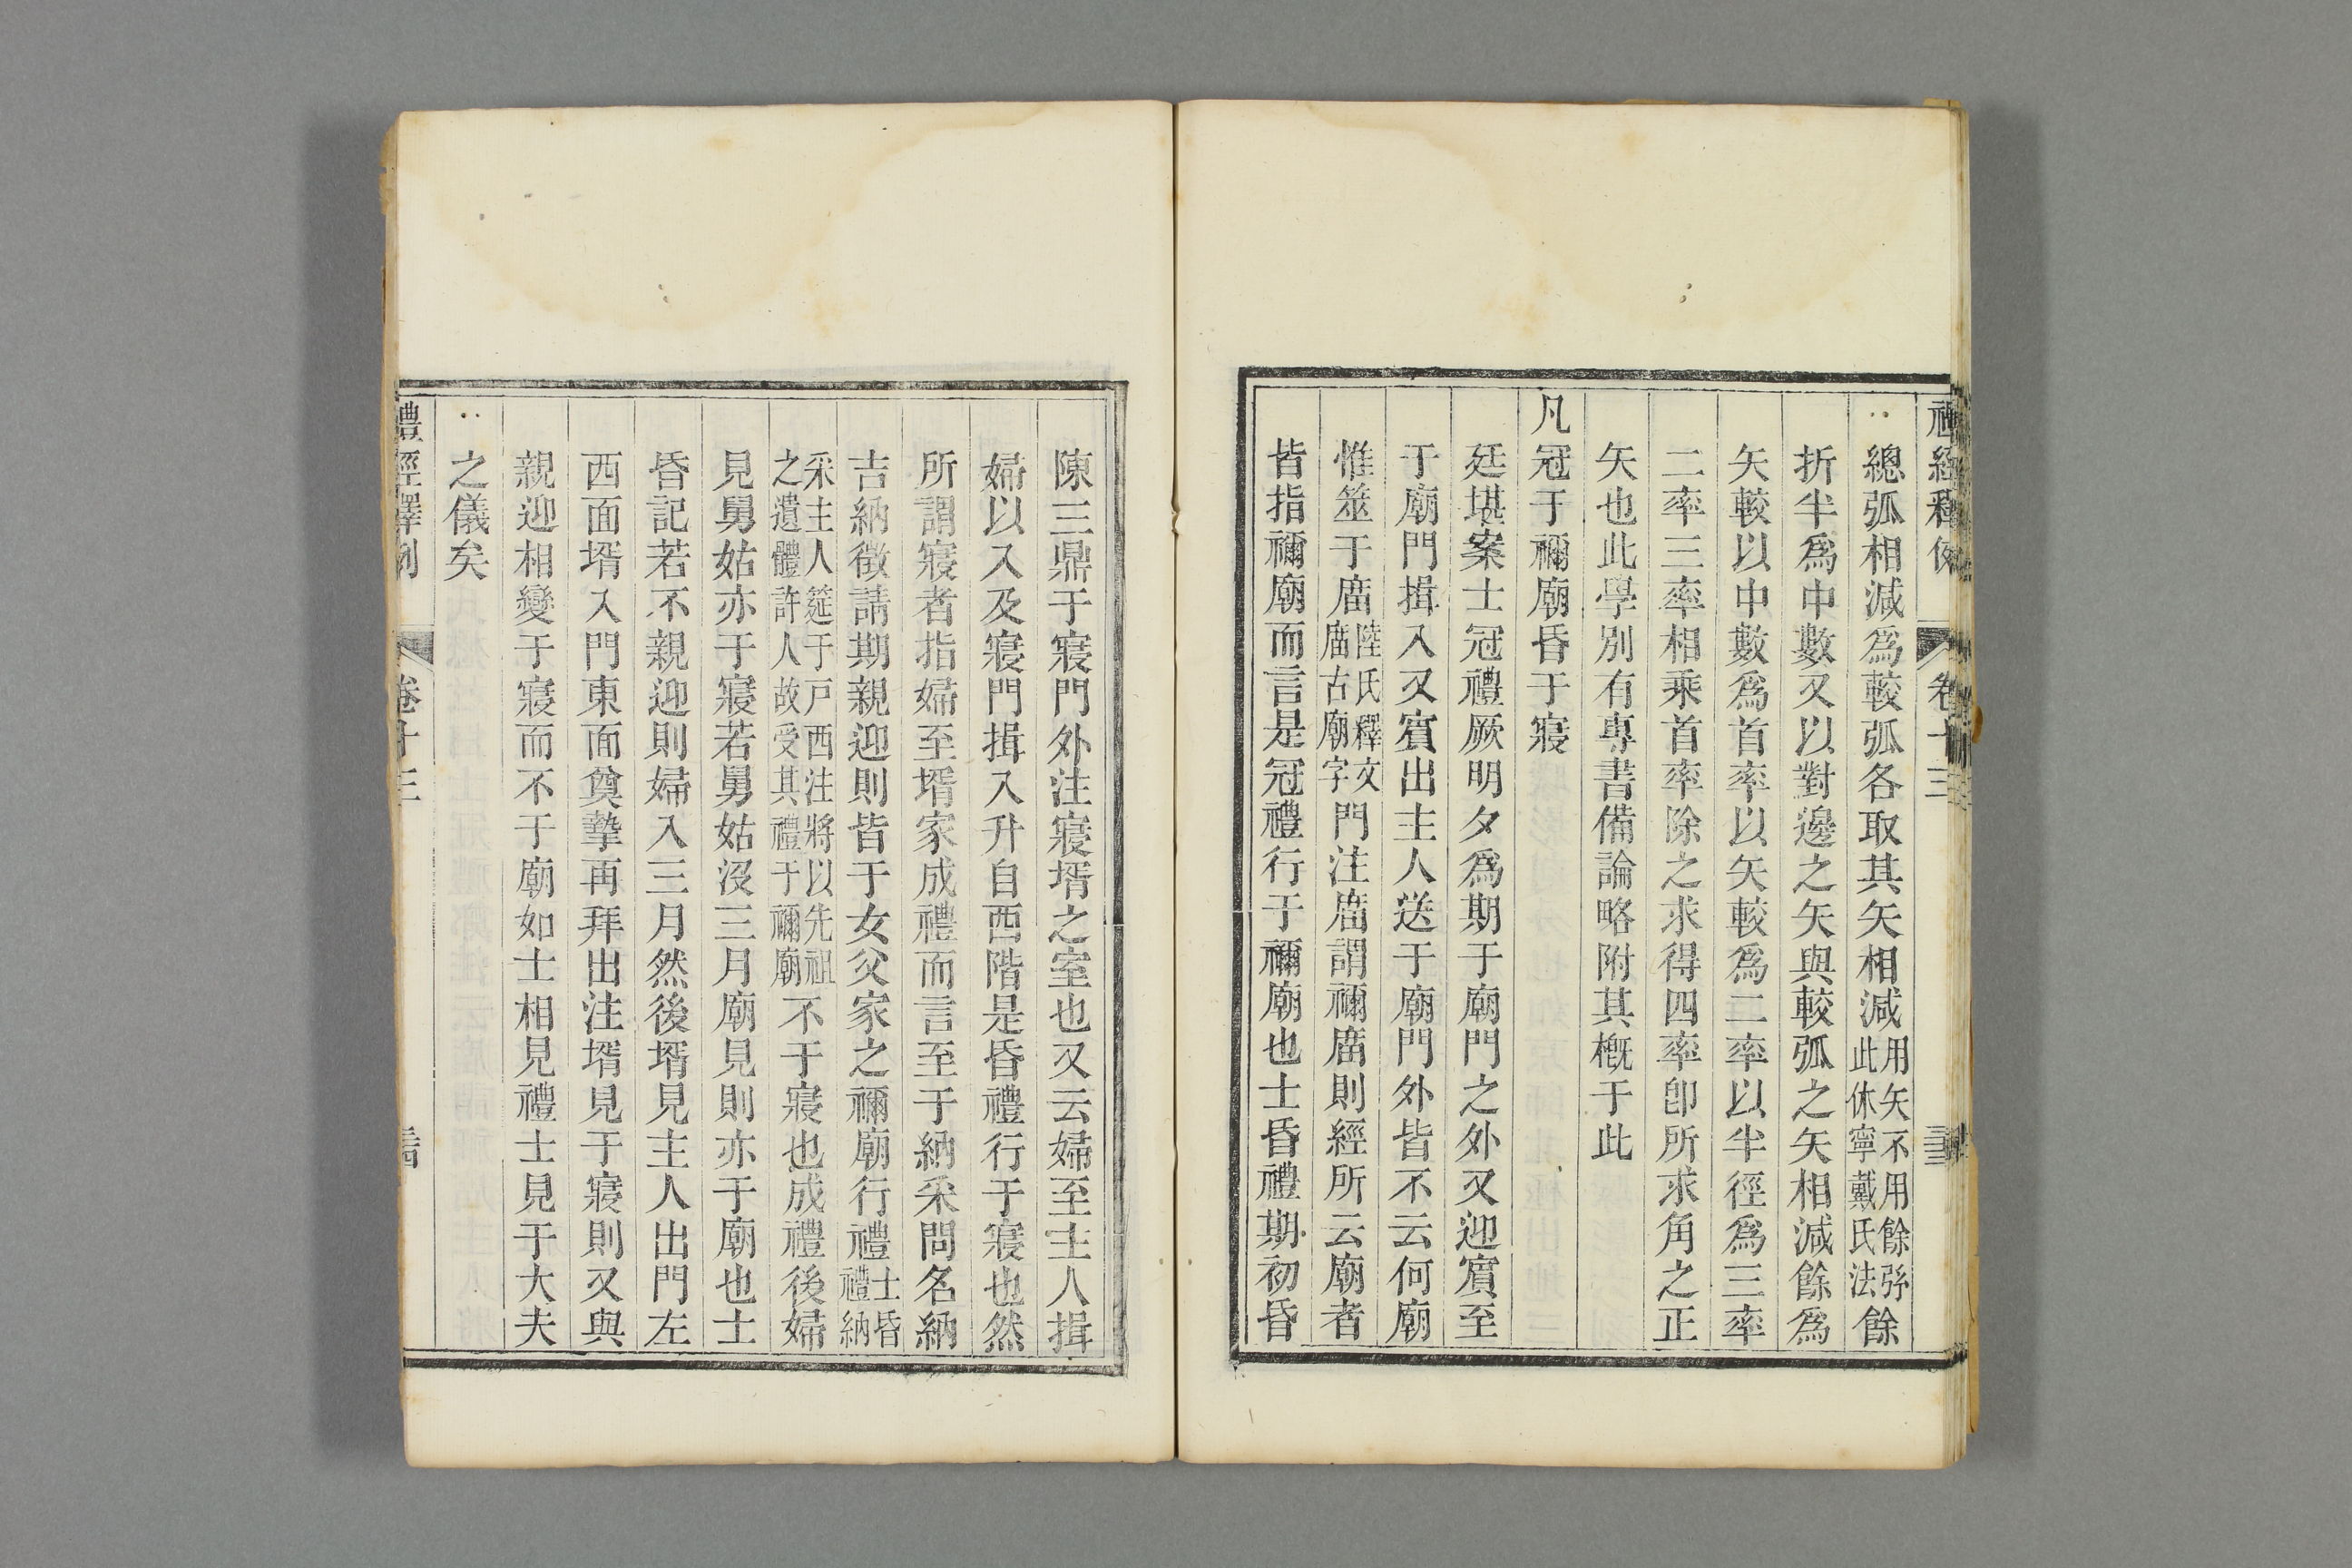 禮經釋例 卷十三
總弧相減爲較弧各取其矢相減用矢不用餘弦此休寧戴氏法餘
折半爲中數又以對邊之矢與較弧之矢相減餘爲
矢較以中數爲首率以矢較爲二率以半徑爲三率
二率三率相乘首率除之求得四率卽所求角之正
矢也此學別有專書備論略附其槪于此
凡冠于禰廟昏于寢
廷堪案士冠禮厥明夕爲期于廟門之外又迎賓至
于廟門揖入又賓出主人送于廟門外皆不云何廟
惟筮于庿陸氏釋文庿古廟字門注庿謂禰庿則經所云廟者
皆指禰廟而言是冠禮行于禰廟也士昏禮期初昏
陳三鼎于寢門外注寢壻之室也又云婦至主人揖
婦以入及寢門揖入升自西階是昏禮行于寢也然
所謂寢者指婦至壻家成禮而言至于納采問名納
吉納徵請期親迎則皆于女父家之禰廟行禮士昏禮納
采主人筵于戸西注將以先祖之遺體許人故受其禮于禰廟不于寢也成禮後婦
見舅姑亦于寢若舅姑沒三月廟見則亦于廟也士
昏記若不親迎則婦入三月然後壻見主人出門左
西面壻入門東面奠摯再拜出注壻見于寢則又與
親迎相變于寢而不于廟如士相見禮士見于大夫
之儀矣
禮經釋例 卷十三